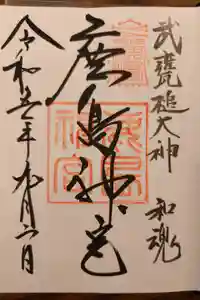 武甕槌大神 和魂
鹿島神宮
鹿島
神宮
令和五年 月六日